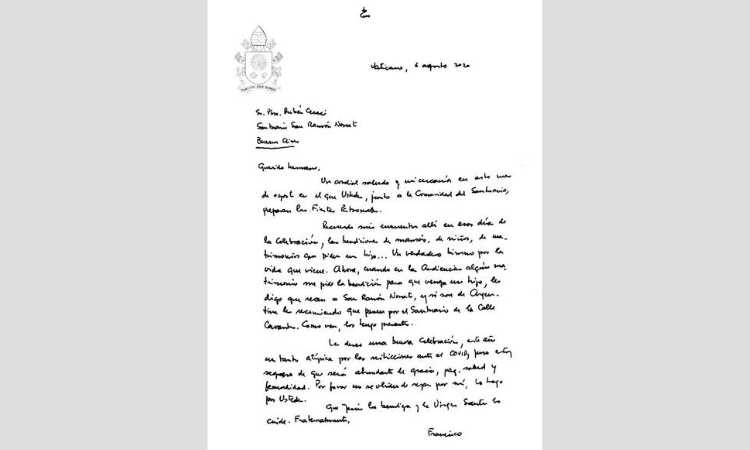 Vaticano, 6 agosto 2020
Sr. Pbro. Rubén Ceraci
Santuario San Ramón Nonato
Buenos Aires
Querido hermano,
Un cordial saludo y mi cercanía en este mes
de agosto en el que Ustedes, junto a la Comunidad del Santuario,
preparan las Fiestas Patronales.
Recuerdo mis encuentros allí en esos días de
la Celebración, las bendiciones de mamás, de niños, de ma-
trimonios que piden un hijo... Un verdadero himno por la
vida que viene. Ahora, cuando en la Audiencia algún ma-
trimonio me pide la bendición para que venga un hijo, les
digo que recen a San Ramón Nonato, y si son de Argen-
tina les recomiendo que pasen por el Santuario de la Calle
Cervantes. Como ven, los tengo presente.
Les deseo una buena Celebración, este año
un tanto atípica por las restricciones ante el COVID, pero estoy
seguro de que será abundante de gracia, paz, salud y
fecundidad. Por favor no se olviden de rezar por mí, lo hago
por Ustedes.
Que Jesús los bendiga y la Virgen Santa los
cuide. Fraternalmente,
Francisco